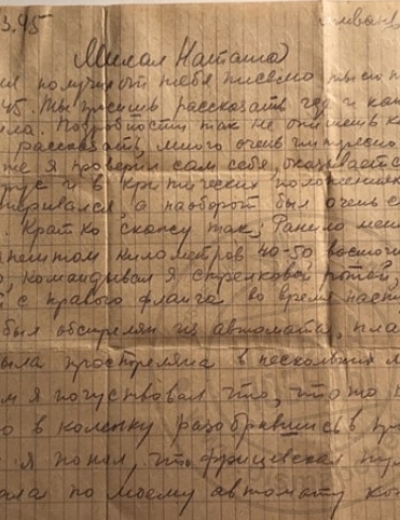 3.45
Милая Наташа
получил от тебя письмо
45. Ты просишь рассказать где и как
Подробности так не опишешь
рассказать, много очень интересно
же я проверил сам себя, оказывается
трус и в критических положениях
терялся, а наоборот был очень с
Кратко скажу так; Ранило меня
километров 40-50 восточн
, командывал я стрелковой ротой,
с правого фланга во время наст
был обстрелян из автомата, пла
была прострелена в нескольких м
я почуствовал что, что-то
в коленку разобравшись в пр
я понял, что фрицевская пул
по моему автомату ко